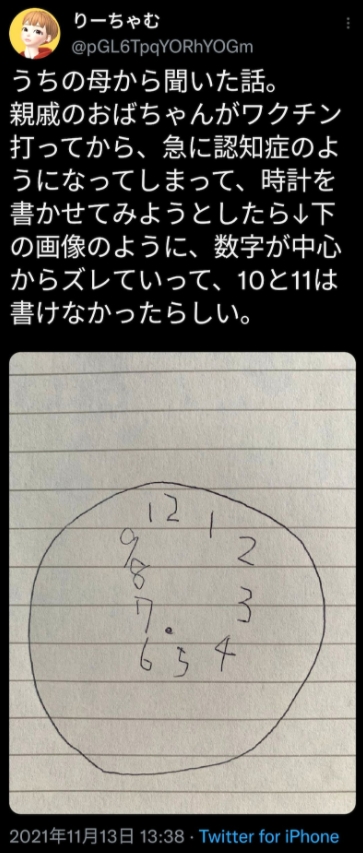 りーちゃむ
@pGL6TpqYORhYOGm
うちの母から聞いた話。
親戚のおばちゃんがワクチン
打ってから、急に認知症のよ
うになってしまって、時計を
書かせてみようとしたら↓下
の画像のように、数字が中心
からズレていって、10と11は
書けなかったらしい。
12
1
9
2
8
7
3
6
5
4
2021年11月13日 13:38 · Twitter for iPhone